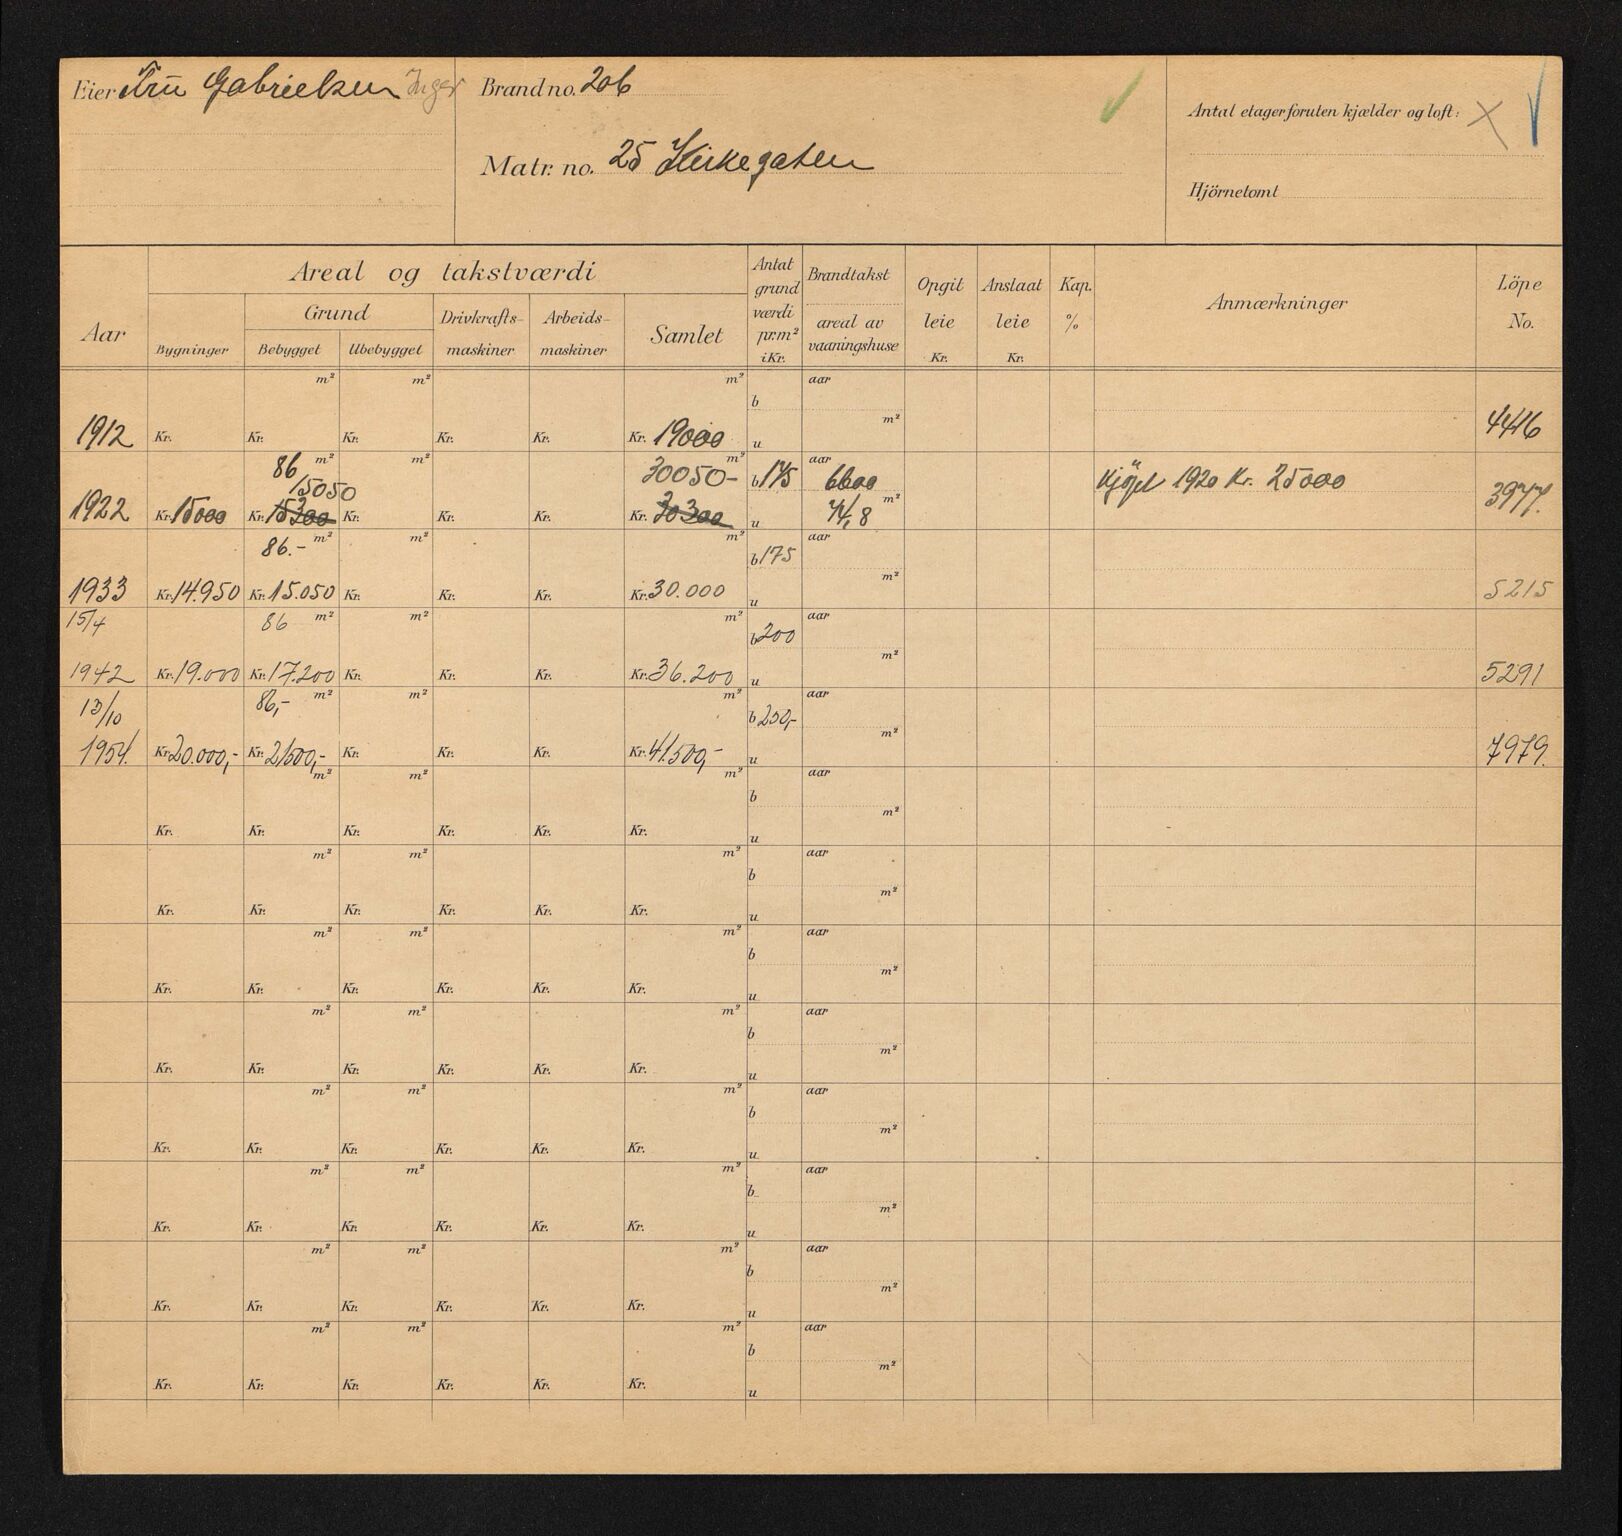 Eier Frü Gabrielsen Inger
Brand no. 206
Matr. no. 25 Kirkegaten
Antal etager foruten kjælder og loft:
Hjörnetomt
Aar
Areal og takstværdi
Grund
Bygninger
Bebygget
Ubebygget
Drivkrafts-
maskiner
Arbeids-
maskiner
Samlet
Antat
grund
værdi
pr.m²
i Kr.
Brandtakst
areal av
vaaningshuse
Opgit
leie
Kr.
Anslaat
leie
Kr.
Kap.
%
Anmærkninger
Löpe
No.
m² m² m² aar
b
m²
1912 Kr. Kr. Kr. Kr. Kr. Kr. 19000 u 4446
86 m² m² 30050- m² b 175 aar 6600 Kjöpt 1920 Kr. 25000
15050
1922 Kr. 15000 Kr. 15300 Kr. Kr. Kr. Kr. 30300 u 74,8 m² 3977.
86.- m² m² m² b 175 aar
m²
1933 Kr. 14.950 Kr. 15.050 Kr. Kr. Kr. Kr. 30.000 u 5215
15/4 86 m² m² m² b 200 aar
m²
1942 Kr. 19.000 Kr. 17.200 Kr. Kr. Kr. Kr. 36.200 u 5291
13/10 86,- m² m² m² b 250,- aar
m²
1954. Kr. 20.000,- Kr. 21500,- Kr. Kr. Kr. Kr. 41.500,- u 7979.
m² m² m² aar
b
m²
Kr. Kr. Kr. Kr. Kr. Kr. u
m² m² m² aar
b
m²
Kr. Kr. Kr. Kr. Kr. Kr. u
m² m² m² aar
b
m²
Kr. Kr. Kr. Kr. Kr. Kr. u
m² m² m² aar
b
m²
Kr. Kr. Kr. Kr. Kr. Kr. u
m² m² m² aar
b
m²
Kr. Kr. Kr. Kr. Kr. Kr. u
m² m² m² aar
b
m²
Kr. Kr. Kr. Kr. Kr. Kr. u
m² m² m² aar
b
m²
Kr. Kr. Kr. Kr. Kr. Kr. u
m² m² m² aar
b
m²
Kr. Kr. Kr. Kr. Kr. Kr. u